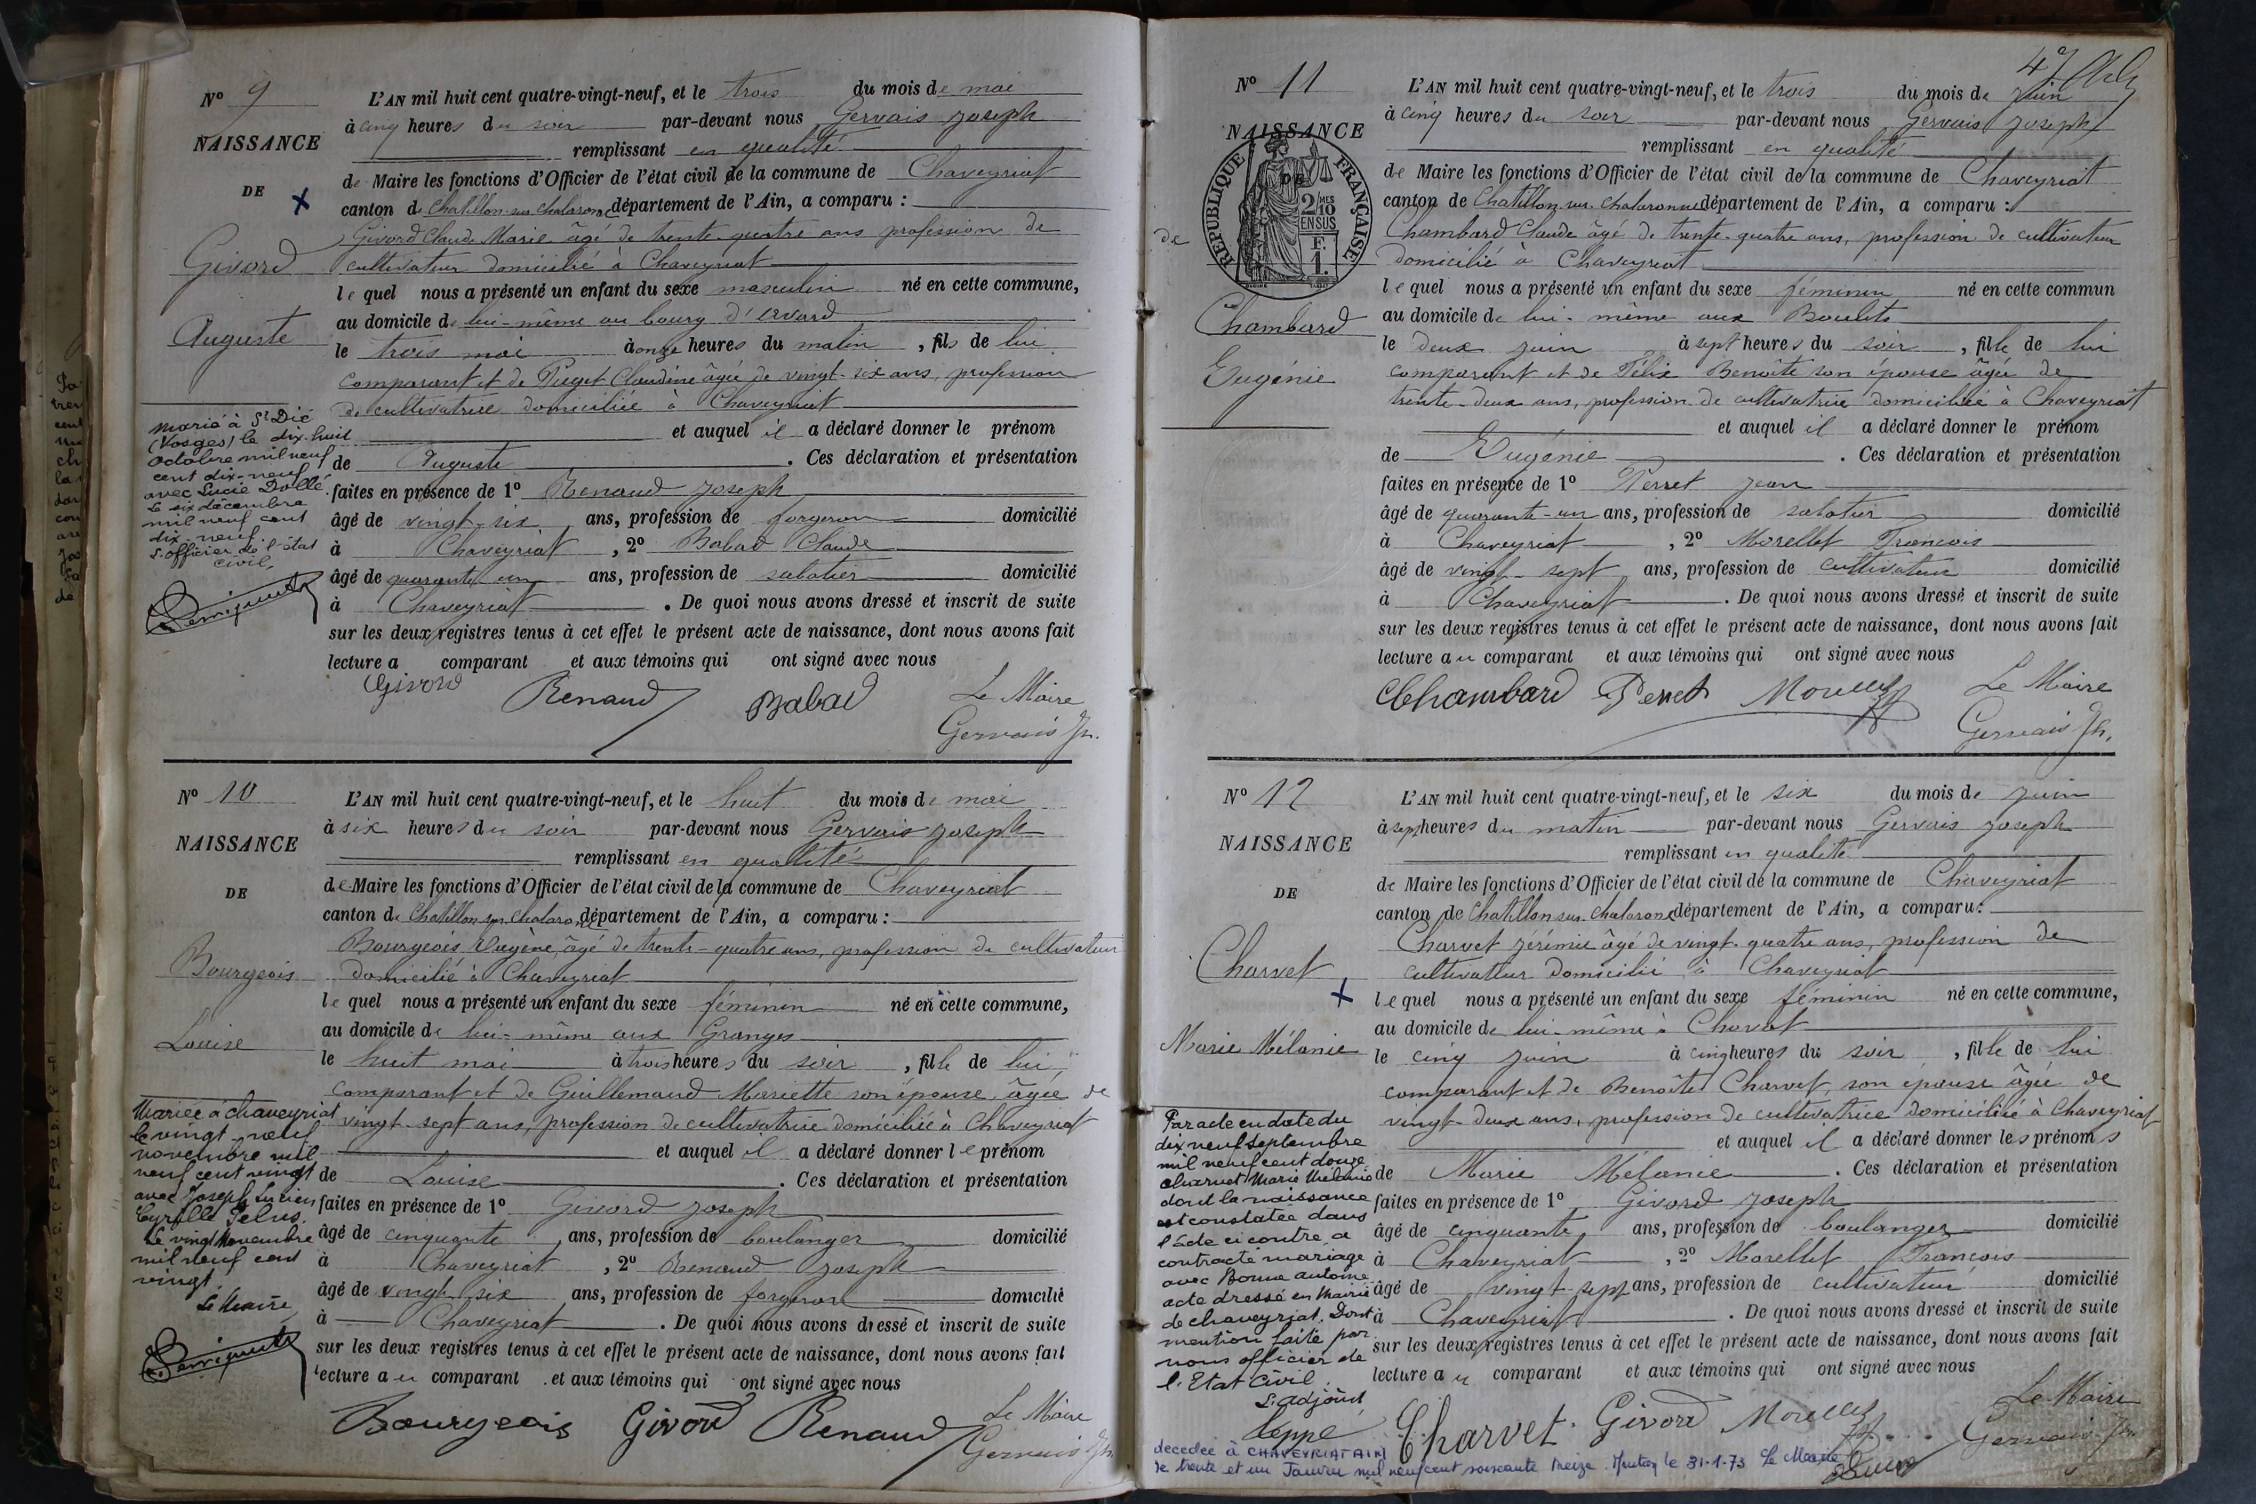 N° 9
NAISSANCE
DE
Givord
Auguste
L'AN mil huit cent quatre-vingt-neuf, et le trois du mois de mai
à cinq heures du soir par-devant nous Gervais Joseph
remplissant en qualité
de Maire les fonctions d'Officier de l'état civil de la commune de Chaveyriat
canton de Chatillon-sur-Chalaronne département de l'Ain, a comparu :
Givord Claude Marie âgé de trente-quatre ans profession de
cultivateur domicilié à Chaveyriat
le quel nous a présenté un enfant du sexe masculin né en cette commune,
au domicile de lui-même au bourg
le trois mai à onze heures du matin, fils de lui
comparant et de Puget Claudine âgée de vingt-six ans, profession
de cultivatrice domiciliée à Chaveyriat
et auquel il a déclaré donner le prénom
de Auguste. Ces déclaration et présentation
faites en présence de 1° Renaud Joseph
âgé de vingt-six ans, profession de forgeron domicilié
à Chaveyriat, 2° Babad Claude
âgé de quarante un ans, profession de sabotier domicilié
à Chaveyriat. De quoi nous avons dressé et inscrit de suite
sur les deux registres tenus à cet effet le présent acte de naissance, dont nous avons fait
lecture a comparant et aux témoins qui ont signé avec nous
Givord Renaud Babad Le Maire
Gervais Jh.
Marié à St Dié
(Vosges) le dix-huit
octobre mil neuf
cent dix-neuf
avec Lucie Dollé.
Le six décembre
mil neuf cent
dix-neuf.
L'officier de l'état
civil,
N° 10
NAISSANCE
DE
Bourgeois
Louise
L'AN mil huit cent quatre-vingt-neuf, et le huit du mois de mai
à six heures du soir par-devant nous Gervais Joseph
remplissant en qualité
de Maire les fonctions d'Officier de l'état civil de la commune de Chaveyriat
canton de Chatillon-sur-Chalaronne département de l'Ain, a comparu :
Bourgeois Eugène, âgé de trente-quatre ans, profession de cultivateur
domicilié à Chaveyriat
le quel nous a présenté un enfant du sexe féminin né en cette commune,
au domicile de lui-même aux Granges
le huit mai à trois heures du soir, fille de lui
comparant et de Guillemaud Mariette son épouse âgée de
vingt-sept ans, profession de cultivatrice domiciliée à Chaveyriat
et auquel il a déclaré donner le prénom
de Louise. Ces déclaration et présentation
faites en présence de 1° Givord Joseph
âgé de cinquante ans, profession de boulanger domicilié
à Chaveyriat, 2° Renaud Joseph
âgé de vingt six ans, profession de forgeron domicilié
à Chaveyriat. De quoi nous avons dressé et inscrit de suite
sur les deux registres tenus à cet effet le présent acte de naissance, dont nous avons fait
lecture au comparant et aux témoins qui ont signé avec nous
Bourgeois Givord Renaud Le Maire
Gervais Jh.
Mariée à Chaveyriat
le vingt-neuf
novembre mil
neuf cent vingt
avec Joseph Lucien
Cyrille Pelus.
Le vingt Novembre
mil neuf cent
vingt
Le Maire
N° 11
NAISSANCE
DE
RÉPUBLIQUE FRANÇAISE
2/10 MES
EN SUS
F.
1.
de
Chambard
Eugénie
47
L'AN mil huit cent quatre-vingt-neuf, et le trois du mois de juin
à cinq heures du soir par-devant nous Gervais Joseph
remplissant en qualité
de Maire les fonctions d'Officier de l'état civil de la commune de Chaveyriat
canton de Chatillon-sur-Chalaronne département de l'Ain, a comparu :
Chambard Claude âgé de trente-quatre ans, profession de cultivateur
domicilié à Chaveyriat
le quel nous a présenté un enfant du sexe féminin né en cette commun
au domicile de lui-même aux Boulets
le deux juin à sept heures du soir, fille de lui
comparant et de Félix Benoîte son épouse âgée de
trente-deux ans, profession de cultivatrice domiciliée à Chaveyriat
et auquel il a déclaré donner le prénom
de Eugénie. Ces déclaration et présentation
faites en présence de 1° Perret Jean
âgé de quarante-un ans, profession de sabotier domicilié
à Chaveyriat, 2° Morellet Francois
âgé de vingt-sept ans, profession de cultivateur domicilié
à Chaveyriat. De quoi nous avons dressé et inscrit de suite
sur les deux registres tenus à cet effet le présent acte de naissance, dont nous avons fait
lecture au comparant et aux témoins qui ont signé avec nous
Chambard Perret Morellet Le Maire
Gervais Jh.
N° 12
NAISSANCE
DE
Charvet
Marie Mélanie
L'AN mil huit cent quatre-vingt-neuf, et le six du mois de juin
à sept heures du matin par-devant nous Gervais Joseph
remplissant en qualité
de Maire les fonctions d'Officier de l'état civil de la commune de Chaveyriat
canton de Chatillon-sur-Chalaronne département de l'Ain, a comparu :
Charvet Jérémie âgé de vingt-quatre ans, profession de
cultivateur domicilié à Chaveyriat
le quel nous a présenté un enfant du sexe féminin né en cette commune,
au domicile de lui-même à
le cinq juin à cinq heures du soir, fille de lui
comparant et de Benoîte Charvet son épouse âgée de
vingt-deux ans, profession de cultivatrice domiciliée à Chaveyriat
et auquel il a déclaré donner les prénoms
de Marie Mélanie. Ces déclaration et présentation
faites en présence de 1° Givord Joseph
âgé de cinquante ans, profession de boulanger domicilié
à Chaveyriat, 2° Morellet Francois
âgé de vingt-sept ans, profession de cultivateur domicilié
à Chaveyriat. De quoi nous avons dressé et inscrit de suite
sur les deux registres tenus à cet effet le présent acte de naissance, dont nous avons fait
lecture au comparant et aux témoins qui ont signé avec nous
Charvet Givord Morellet Le Maire
Gervais Jh.
Par acte en date du
dix neuf Septembre
mil neuf cent douze
Charvet Marie Mélanie
dont la naissance
est constatée dans
l'acte ci contre, a
contracté mariage
avec Bonne Antoine
acte dressé en Mairie
de Chaveyriat. Dont
mention faite par
nous officier de
l'Etat Civil.
L'adjoint
décédée à CHAVEYRIAT AIN
le trente et un Janvier mil neuf cent soixante treize. le 31-1-73 Le Maire